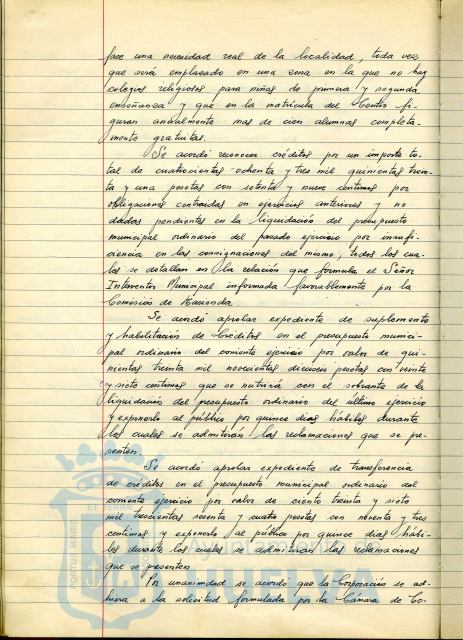 face una necesidad real de la localidad, toda vez
que será emplazado en una zona en la que no hay
colegios religiosos para niñas de primera y segunda
enseñanza y que en la matrícula del Centro fi-
guran anualmente mas de cien alumnas completa-
mente gratuitas.
Se acordó reconocer créditos por un importe to-
tal de cuatrocientas ochenta y tres mil quinientas trein-
ta y una pesetas con setenta y nueve centimos por
obligaciones contraidas en ejercicios anteriores y no
dadas pendientes en la liquidación del presupuesto
municipal ordinario del pasado ejercicio por insufi-
ciencia en las consignaciones del mismo, todos los cua-
les se detallan en la relación que formula el Señor
Interventor Municipal informada favorablemente por la
Comisión de Hacienda.
Se acordó aprobar expediente de suplemento
y habilitación de Créditos en el presupuesto munici-
pal ordinario del corriente ejercicio por valor de qui-
nientas treinta mil novecientas dieciseis pesetas con veinte
y siete centimos que se nutrirá con el sobrante de la
liquidación del presupuesto ordinario del ultimo ejercicio
y exponerlo al público por quince dias hábiles durante
los cuales se admitirán las reclamaciones que se pre-
senten.
Se acordó aprobar expediente de transferencia
de créditos en el presupuesto municipal ordinario del
corriente ejercicio por valor de ciento treinta y siete
mil trescientas sesenta y cuatro pesetas con noventa y tres
centimos y exponerlo al público por quince dias hábi-
les durante los cuales se admitiran las reclamaciones
que se presenten
Por unanimidad se acordó que la Corporación se ad-
hiera a la solicitud formulada por la Cámara de Co-